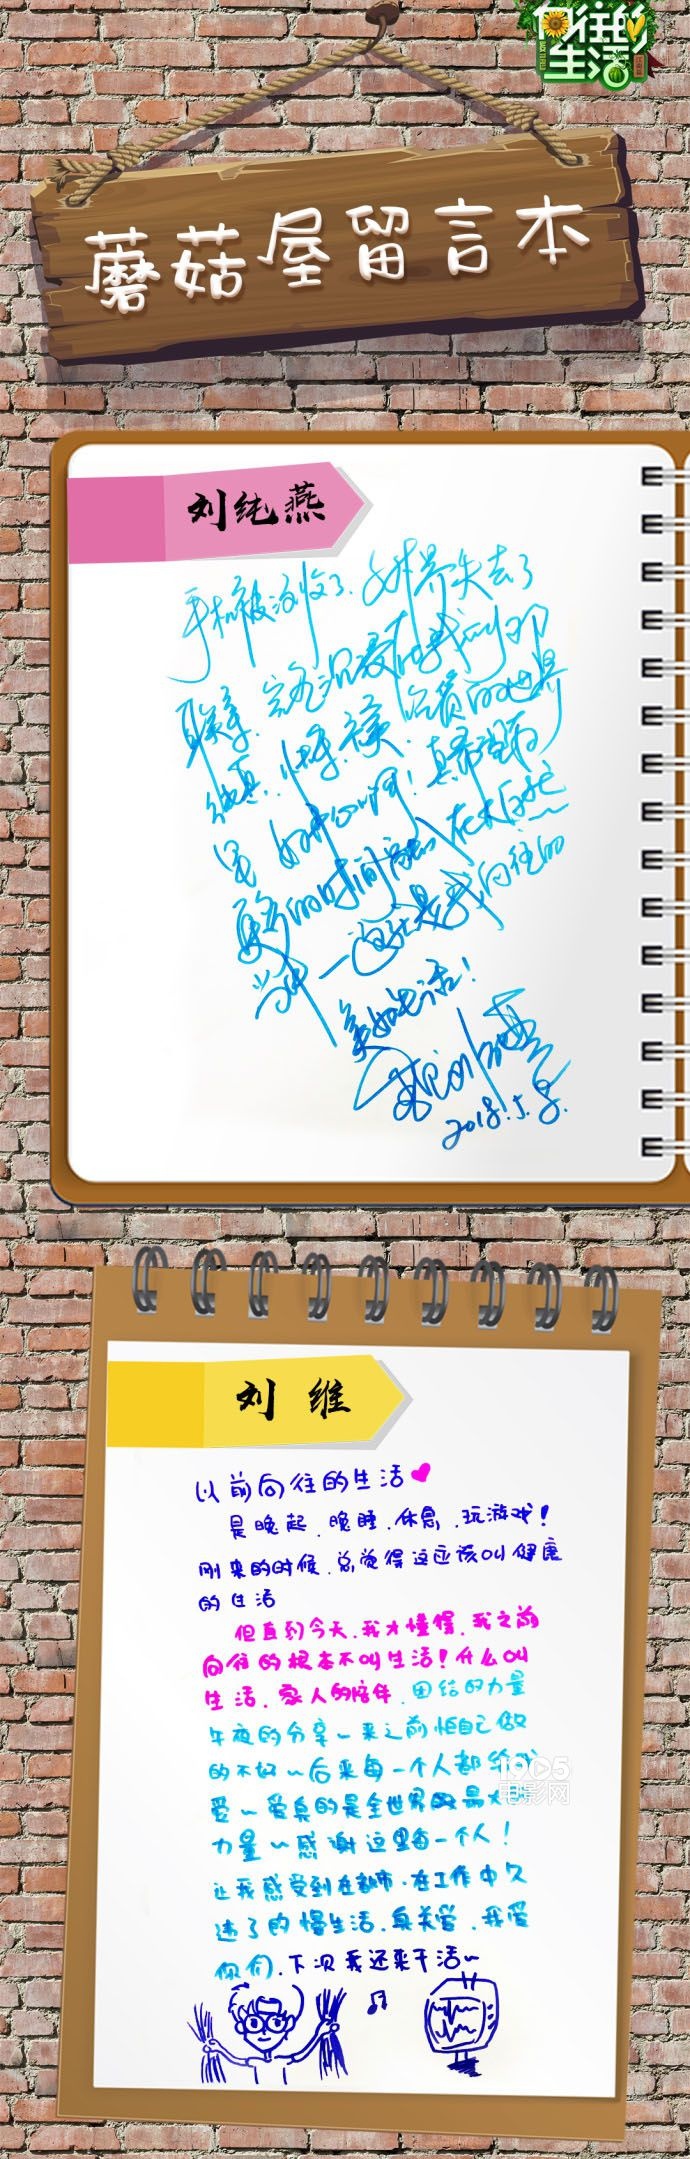 向往的
生活
蘑菇屋留言本
刘纯燕
手机被没收了.与世界失去了
联系.完全沉浸在我们的
纯真.快乐.
的世界
里 好开心啊! 真希望有
更多的时间 在大自然
当中—这就是我向往的
美好生活!
刘纯燕
2018.5.8.
刘维
以前向往的生活
是晚起.晚睡.休息.玩游戏!
刚来的时候.总觉得这应该叫健康
的生活
但直到今天.我才懂得.我之前
向往的根本不叫生活!什么叫
生活.家人的陪伴.团结的力量
午夜的分享~来之前怕自己做
的不好~后来每一个人都给我
爱~爱真的是全世界最大的
力量~感谢这里每一个人!
让我感受到在都市.在工作中久
违了的慢生活.真关爱.我爱
你们.下次我还来干活~
1905
电影网